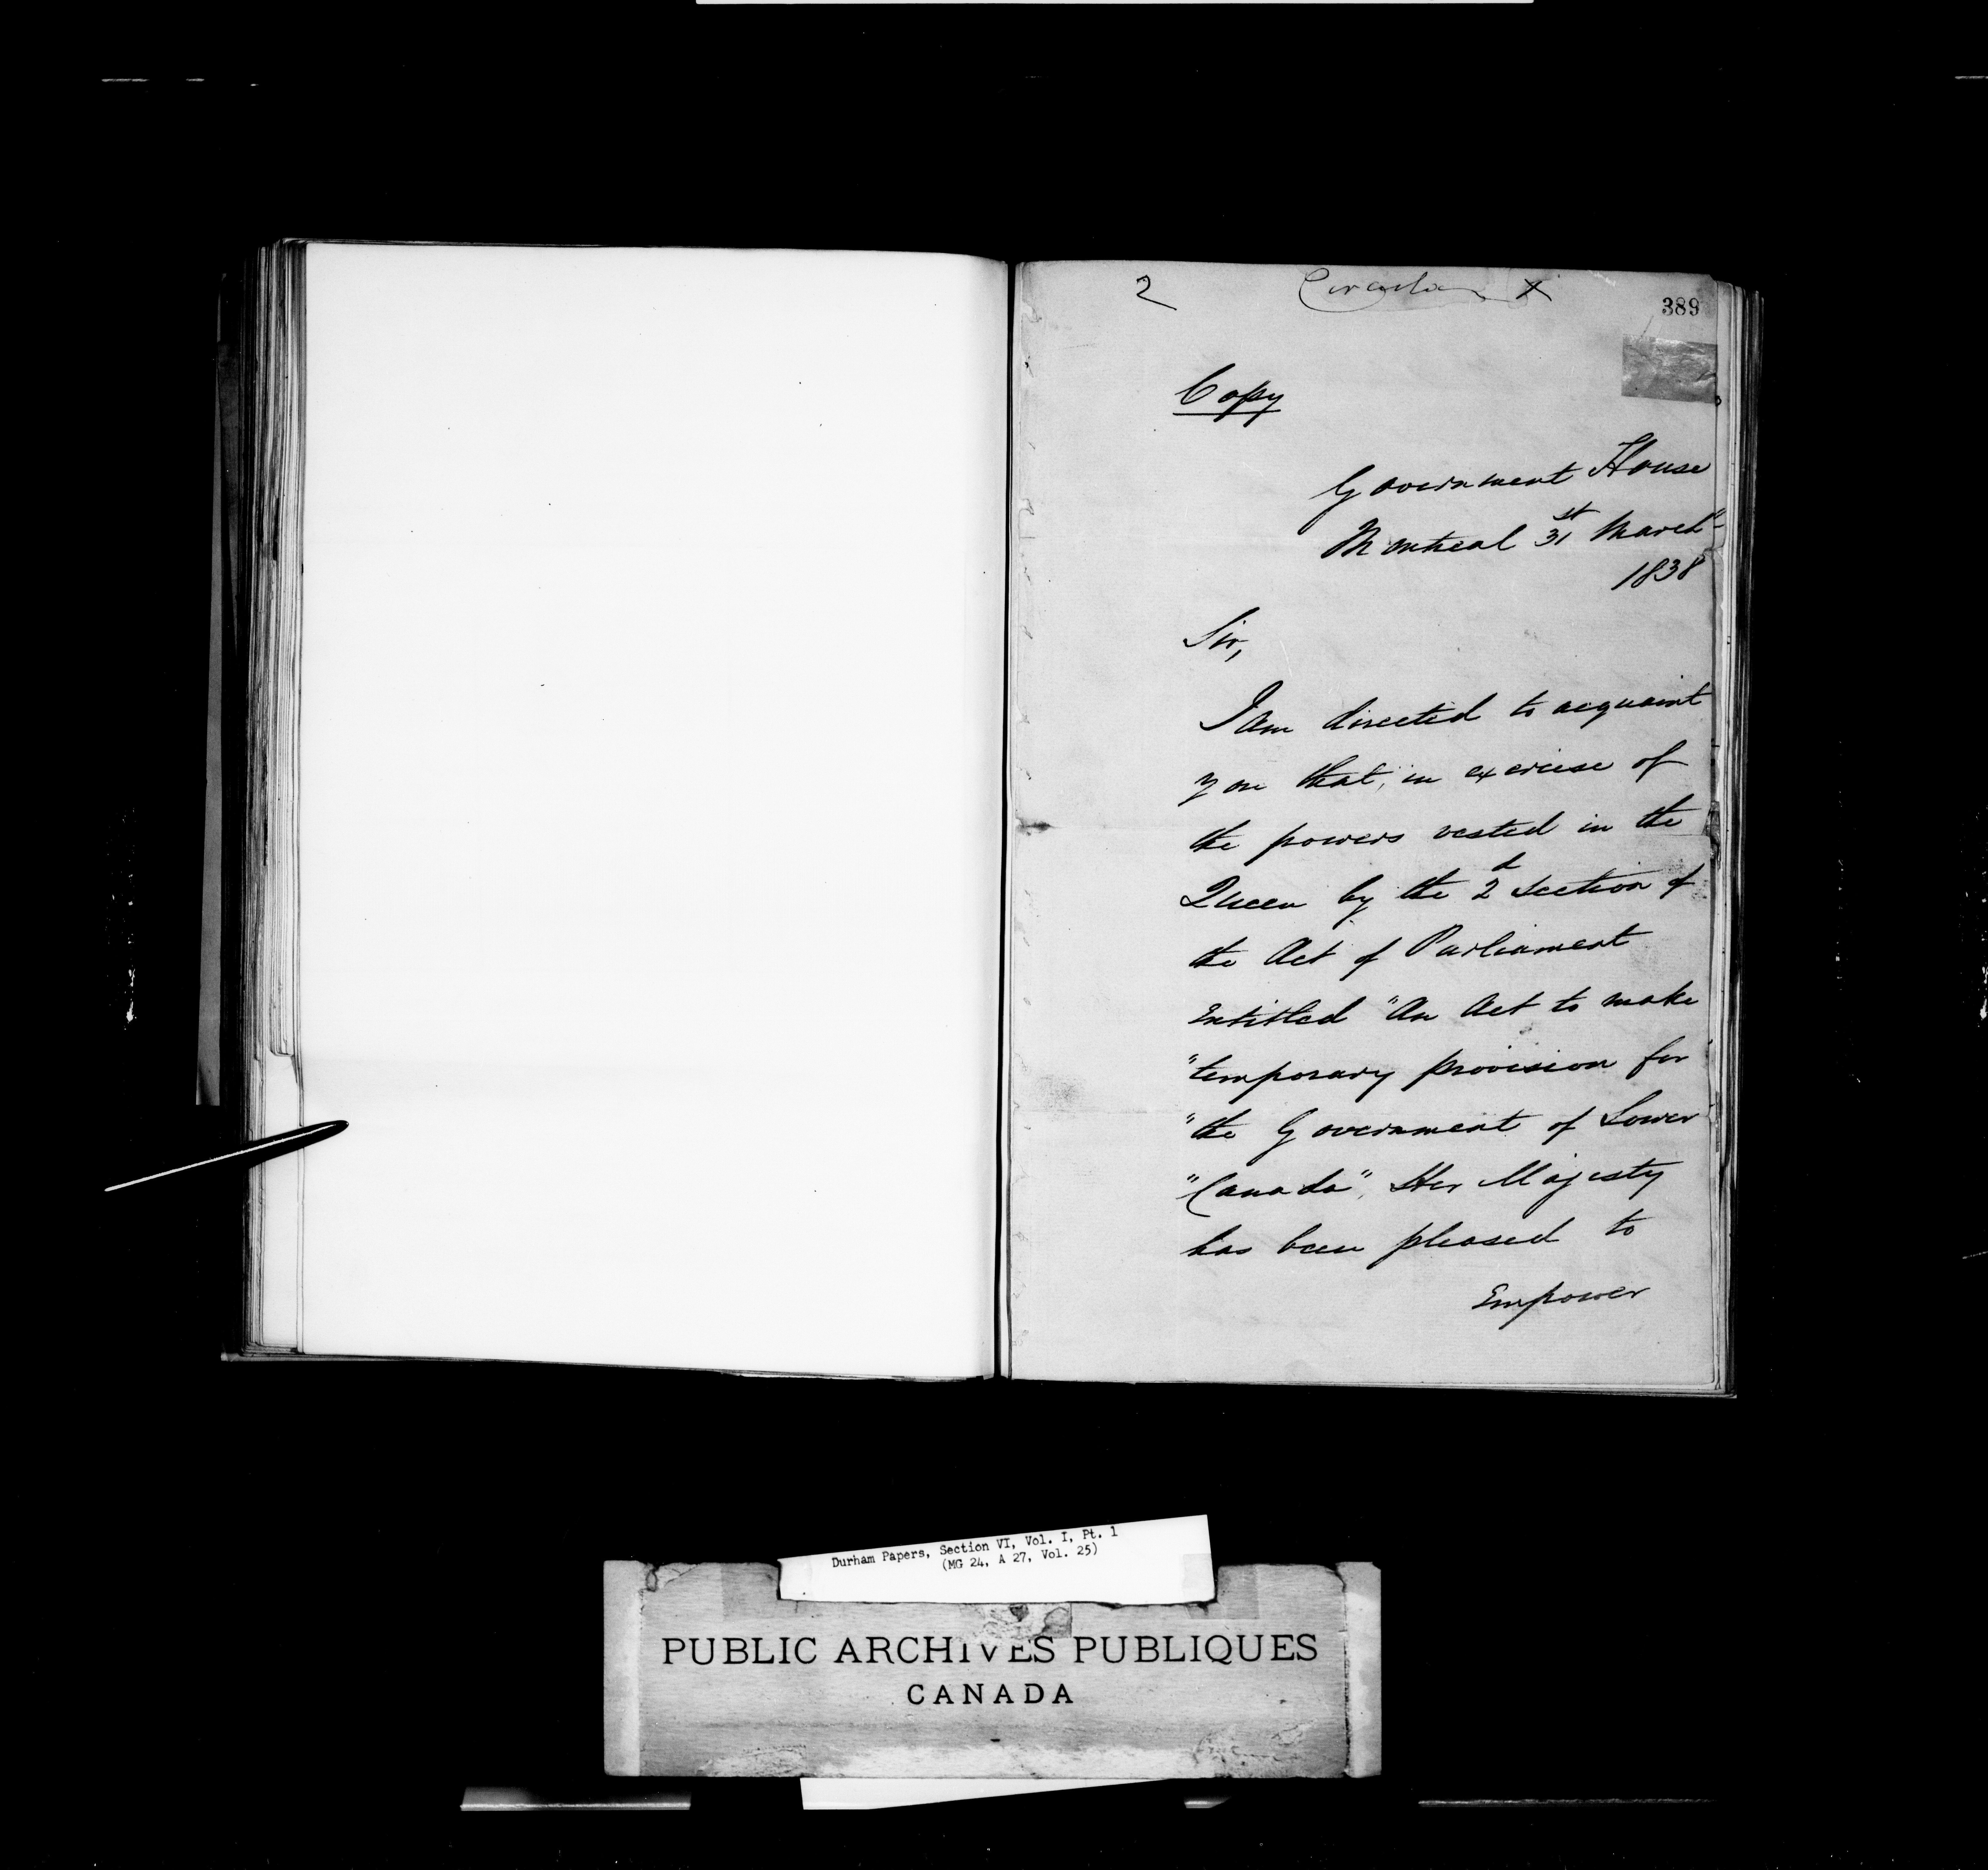 2 Circular X
389
Copy
Government House
Montreal 31st March
1838
Sir,
I am directed to acquaint
you that, in exercise of
the powers vested in the
Queen by the 2d Section of
the Act of Parliament
Entitled "An Act to make
"temporary provision for
"the Government of Lower
"Canada", Her Majesty
has been pleased to
Empower
Durham Papers, Section VI, Vol. I, Pt. 1
(MG 24, A 27, Vol. 25)
PUBLIC ARCHIVES PUBLIQUES
CANADA